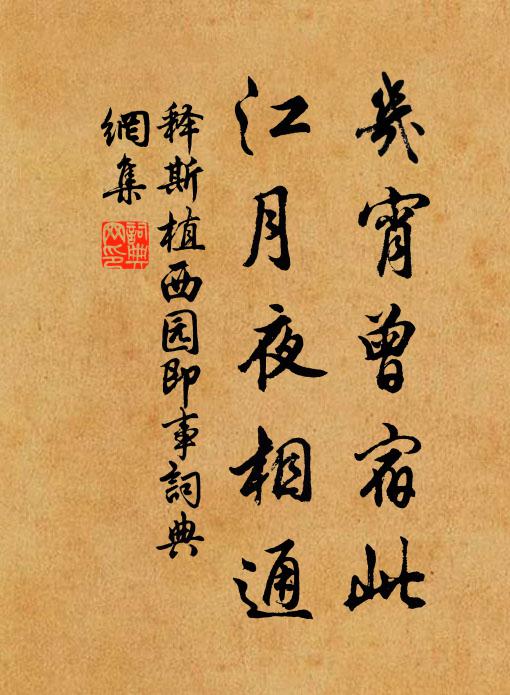 幾宵曾宿此
江月夜相通
释斯植西园即事詞典
網集
詞典網印